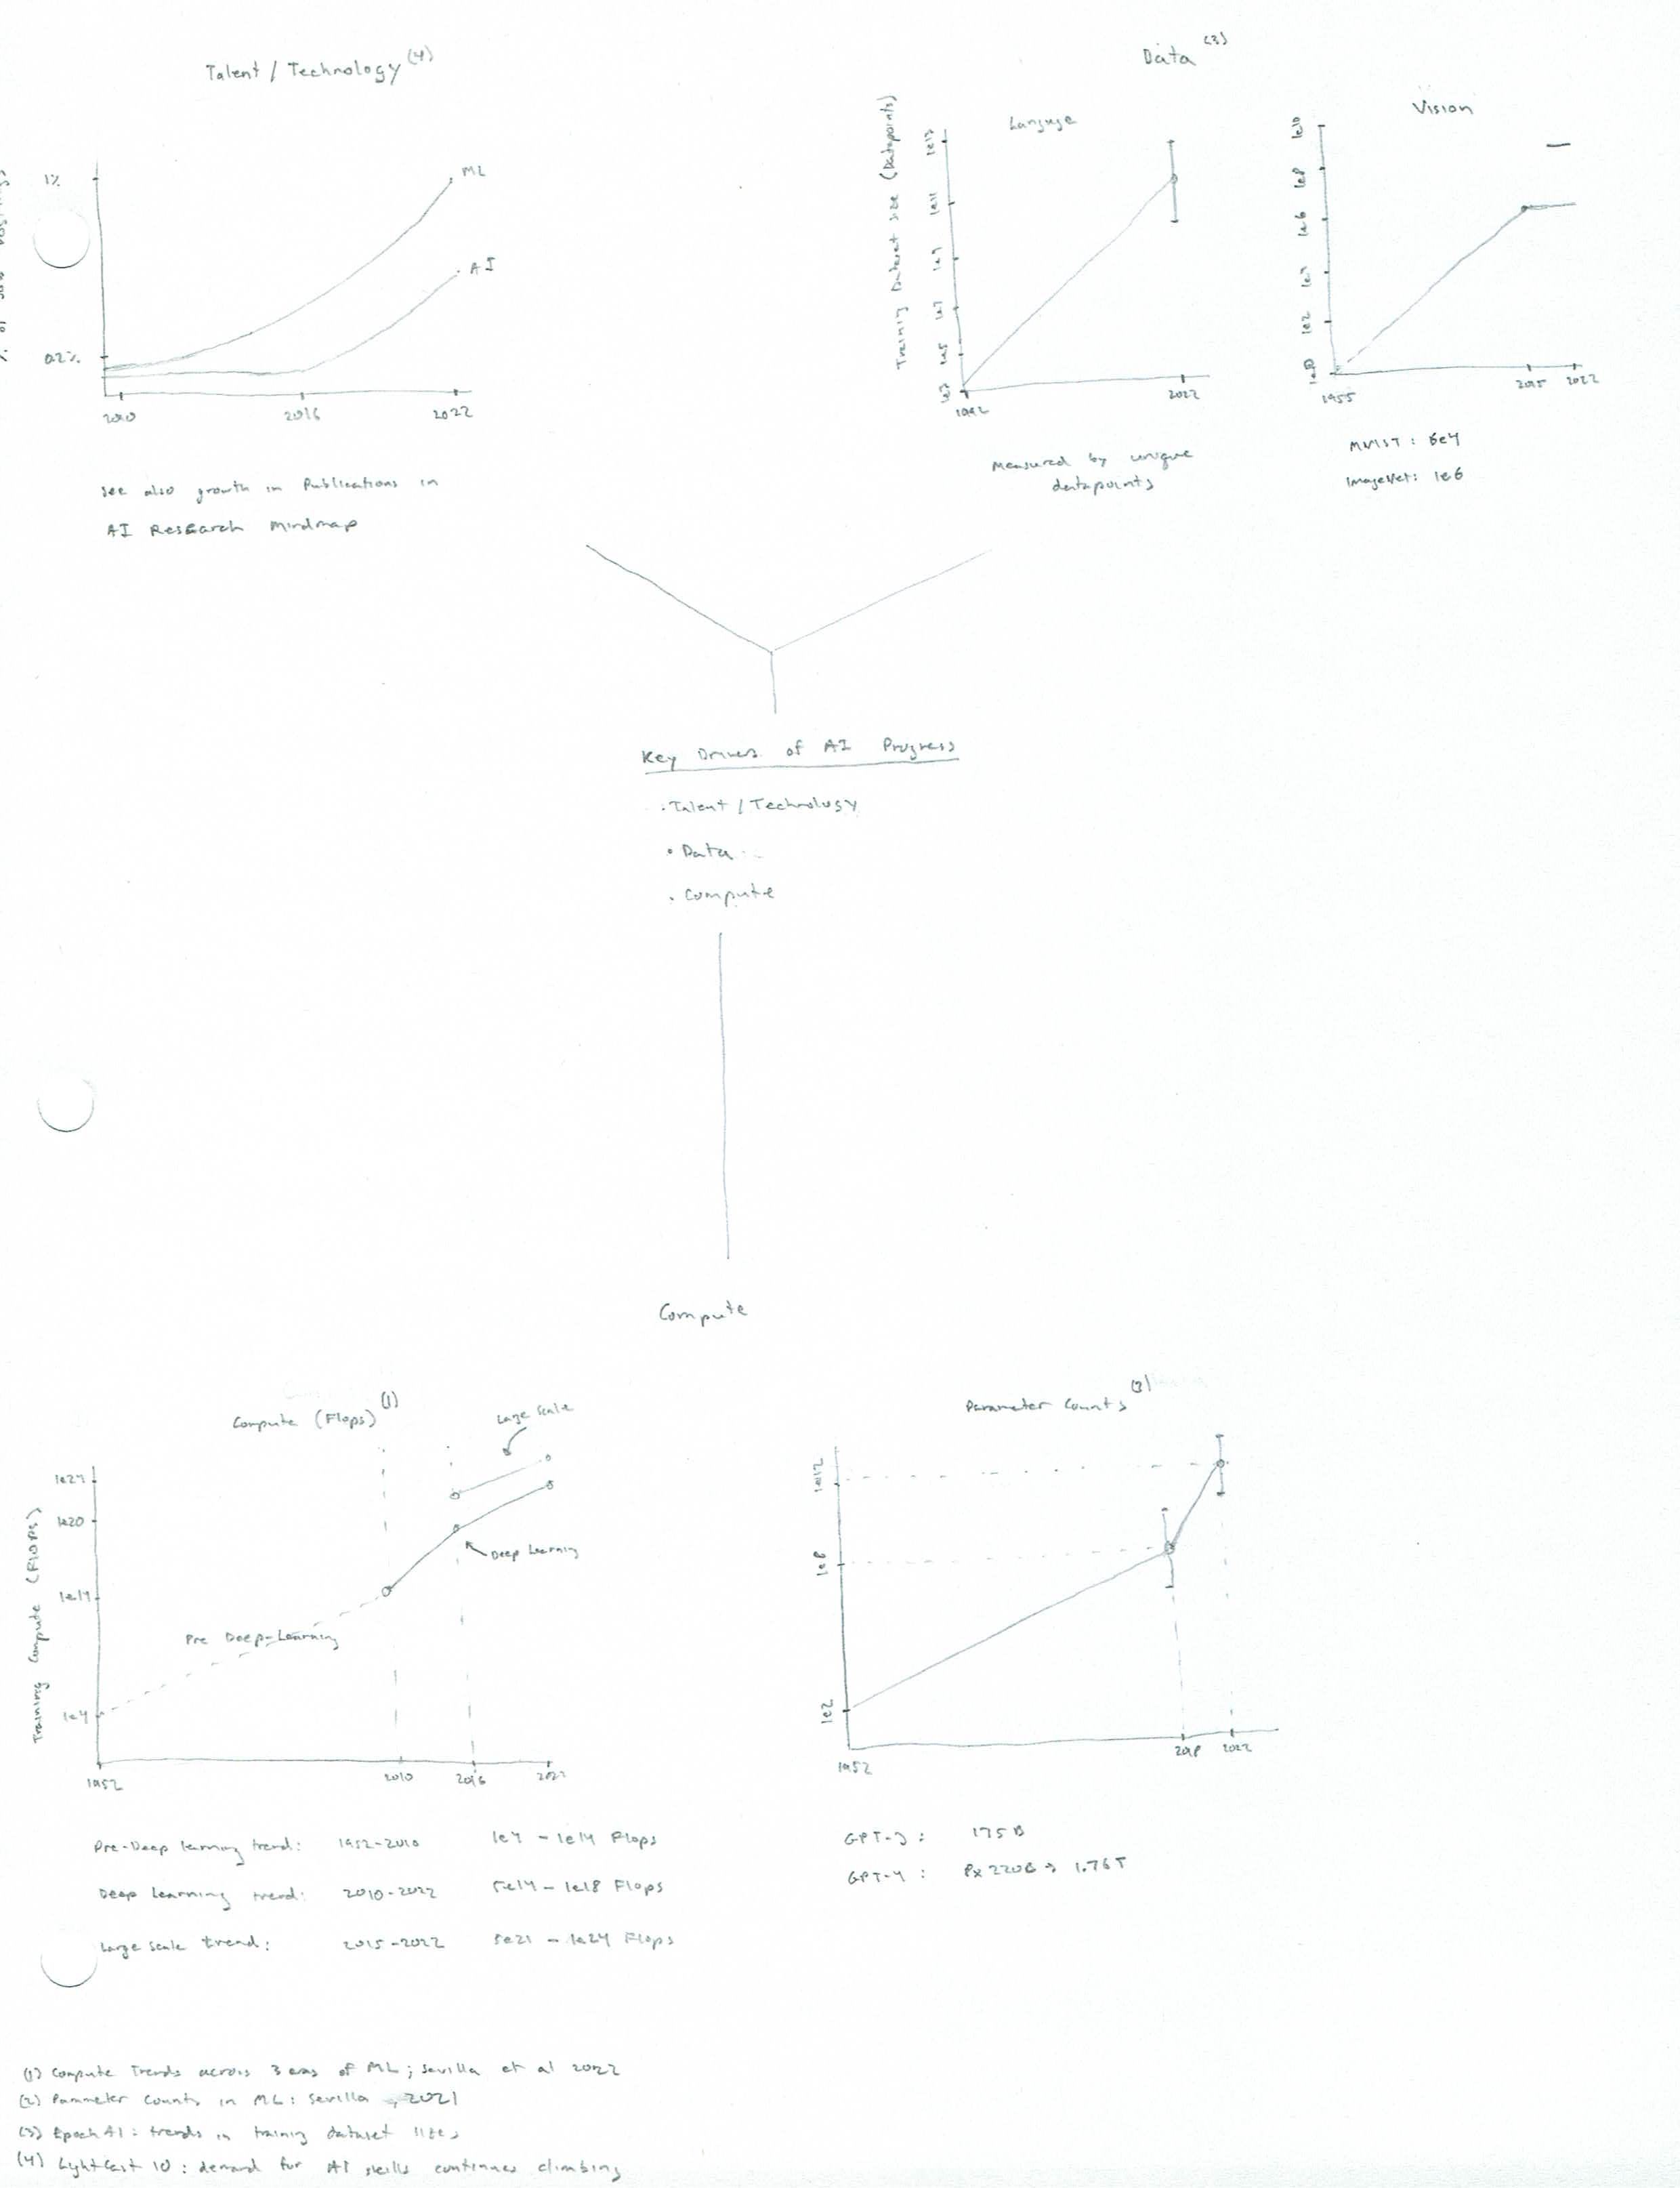 Talent / Technology (4)
% of Job Postings
1%
0.2%
ML
AI
2010 2016 2022
See also growth in Publications in
AI Research Mindmap
Data (3)
Languge
Training Dataset Size (Datapoints)
1e13
1e11
1e9
1e7
1e5
1e3
1992 2022
Measured by unique
datapoints
Vision
1e10
1e8
1e6
1e2
1955 2015 2022
MNIST : 6e4
ImageNet: 1e6
Key Drivers of AI Progress
• Talent / Technology
• Data
• Compute
Compute
Compute (Flops) (1)
Large Scale
Training Compute (FLOPS)
1e24
1e20
1e14
1e4
Deep Learning
Pre Deep-Learning
1952 2010 2016 2022
Pre-Deep learning trend: 1952-2010 1e4 - 1e14 Flops
Deep Learning trend: 2010-2022 5e14 - 1e18 Flops
Large Scale trend: 2015-2022 5e21 - 1e24 Flops
Parameter Counts (2)
1e12
1e8
1e2
1952 2018 2022
GPT-3 : 175B
GPT-4 : 8x220B → 1.76T
(1) Compute Trends across 3 eras of ML; Sevilla et al 2022
(2) Parameter Counts in ML: Sevilla, 2021
(3) Epoch AI: trends in training dataset sizes
(4) LightCast IO: demand for AI skills continues climbing